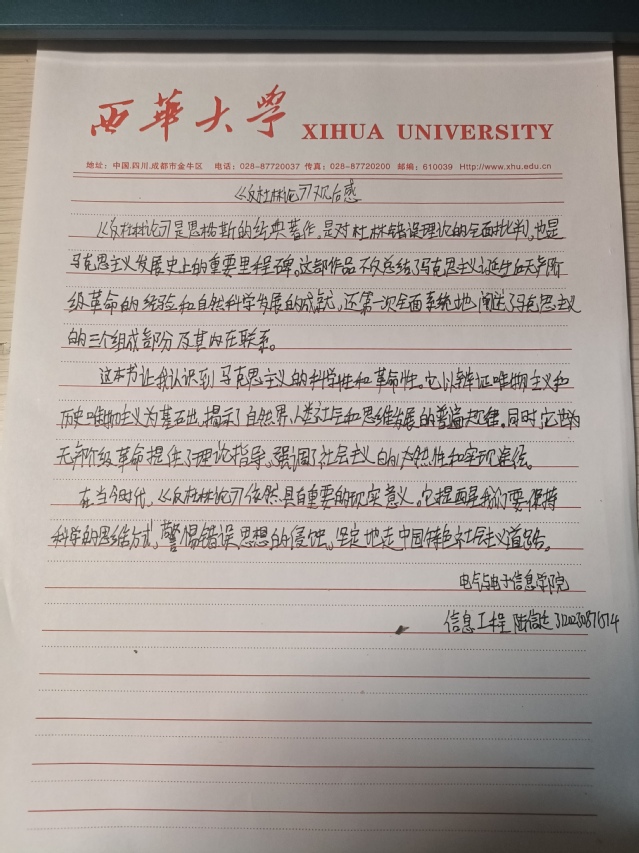 西華大學 XIHUA UNIVERSITY
地址：中国.四川.成都市金牛区 电话：028-87720037 传真：028-87720200 邮编：610039 Http://www.xhu.edu.cn
《反杜林论》观后感
《反杜林论》是恩格斯的经典著作，是对杜林错误理论的全面批判，也是
马克思主义发展史上的重要里程碑。这部作品不仅总结了马克思主义诞生后无产阶
级革命的经验和自然科学发展的成就，还第一次全面系统地阐述了马克思主义
的三个组成部分及其内在联系。
这本书让我认识到马克思主义的科学性和革命性。它以辩证唯物主义和
历史唯物主义为基础，揭示了自然界、人类社会和思维发展的普遍规律。同时，它也为
无产阶级革命提供了理论指导，强调了社会主义的必然性和实现途径。
在当今时代，《反杜林论》依然具有重要的现实意义。它提醒我们要保持
科学的思维方式，警惕错误思想的侵蚀，坚定地走中国特色社会主义道路。
电气与电子信息学院
信息工程 陆信